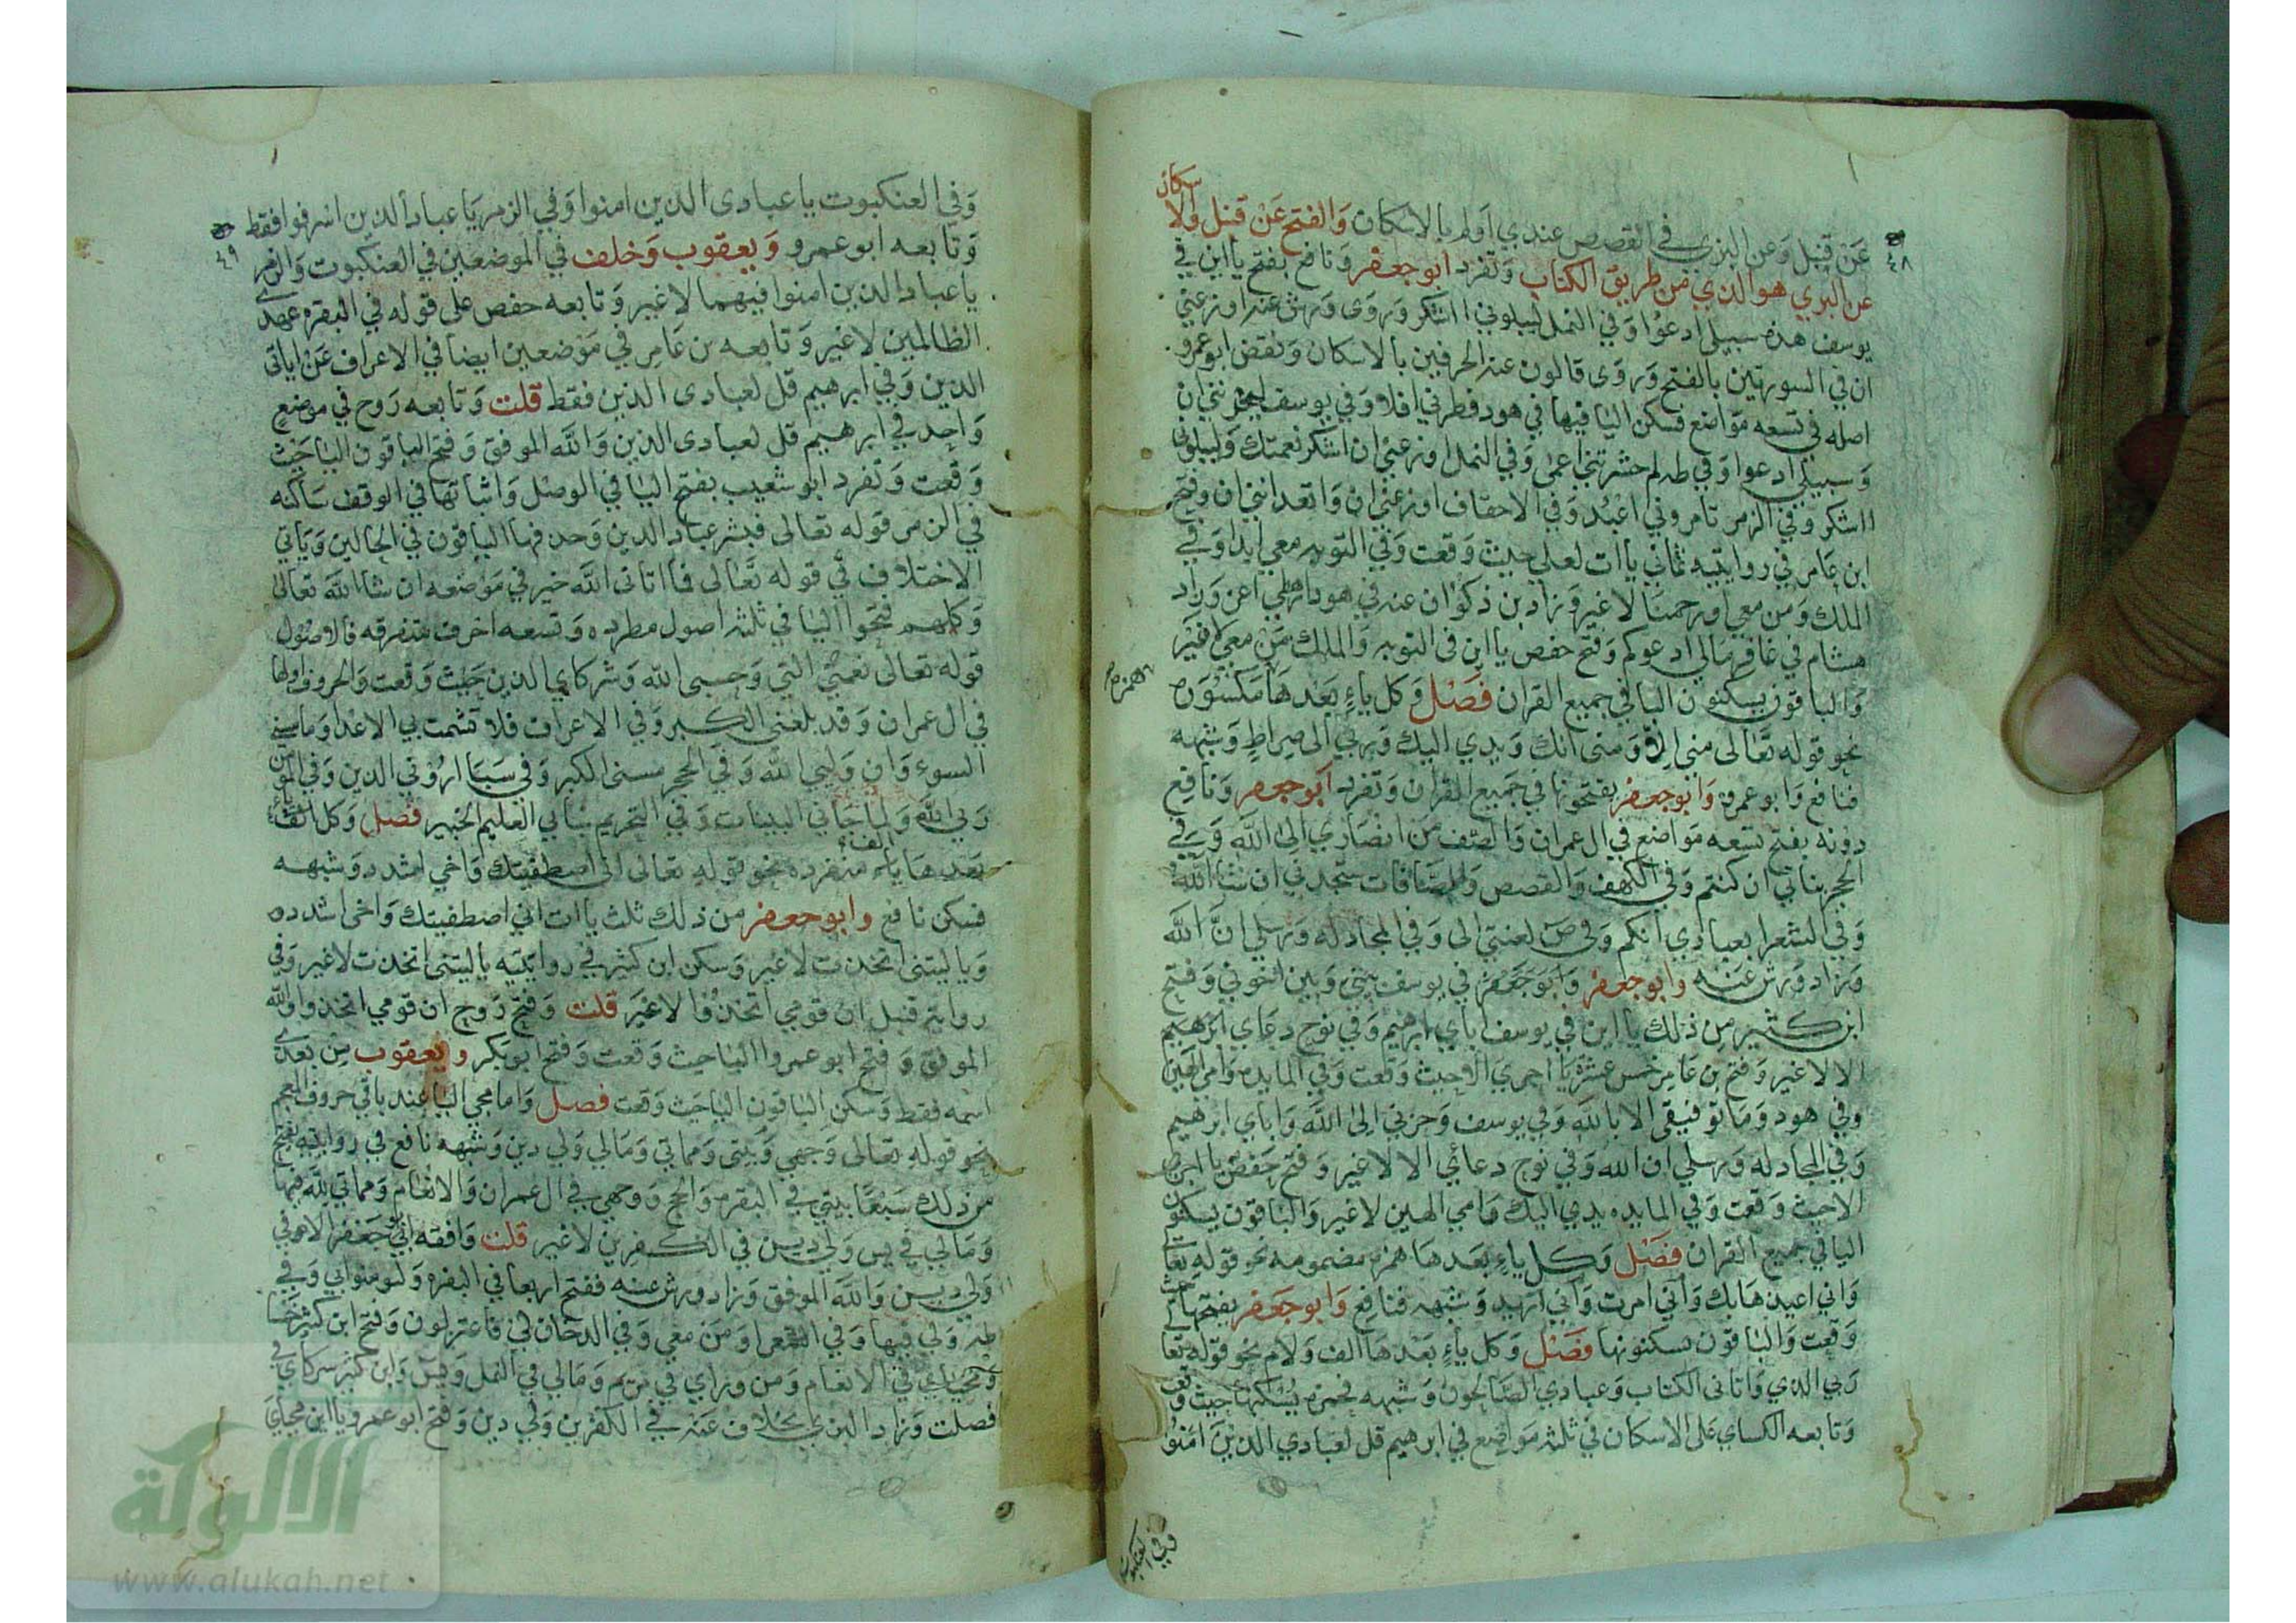 سكان
عن قنبل وعن البزي في القصص عندي اولم بالاسكان والفتح عن قنبل والا
٤٨
عن البزي هو الذي من طريق الكتاب وتفرد ابو جعفر ونافع بفتح يااين في
يوسف هذه سبيلي ادعوا وفي النمل ليبلوني ااشكر وروى ورش عنه اوزعني
ان في السورتين بالفتح وروى قالون عنه الحرفين بالاسكان ونقض ابو عمرو
اصله في تسعه مواضع فسكن اليا فيها في هود فطرني افلا وفي يوسف ليحزنني ان
وسبيلي ادعوا وفي طه لم حشرتني اعمى وفي النمل اوزعني ان اشكر نعمتك وليبلوني
ااشكر وفي الزمر تامروني اعبد وفي الاحقاف اوزعني ان واتعدانني ان وفتح
ابن عامر في روايتيه ثماني يات لعلي حيث وقعت وفي التوبه معي ابدا وفي
الملك ومن معي اورحمنا لا غير وزاد بن ذكوان عنه في هود ارهطي اعز وزاد
هشام في غافر مالي ادعوكم وفتح حفص ياان في التوبه والملك من معي لا غير
والباقون يسكنون اليا في جميع القران فصل وكل ياء بعدها مكسوره
همزه
نحو قوله تعالى مني الا ومني انك ويدي اليك وربي الى صراط وشبهه
فنافع وابو عمرو وابو جعفر يفتحونها في جميع القران وتفرد ابو جعفر ونافع
دونه بفتح تسعه مواضع في ال عمران والصف من انصاري الى الله وفي
الحجر بناتي ان كنتم وفي الكهف والقصص والصافات ستجدني ان شا الله
وفي الشعرا بعبادي انكم وفي ص لعنتي الى وفي المجادله ورسلي ان الله
وزاد ورش عنه وابو جعفر وابو جعفر في يوسف بيني وبين اخوتي وفتح
ابن كثير من ذلك ياين في يوسف اباي ابرهيم وفي نوح دعاي ابرهيم
الا لا غير وفتح بن عامر خمس عشر يا اجري الا حيث وقعت وفي المايده وامي الهين
وفي هود وما توفيقي الا بالله وفي يوسف وحزني الى الله واباي ابرهيم
وفي المجادله ورسلي ان الله وفي نوح دعائي الا لا غير وفتح حفص يا اجري
الا حيث وقعت وفي المايده يدي اليك وامي الهين لا غير والباقون يسكنون
اليا في جميع القران فصل وكل ياء بعدها همزه مضمومه نحو قوله تعا
واني اعيذها بك واني امرت واني اريد وشبهه فنافع وابو جعفر يفتحها حيث
وقعت والباقون يسكنونها فصل وكل ياء بعدها الف ولام نحو قوله تعا
ربي الذي واتاني الكتاب وعبادي الصالحون وشبهه فحمزه يسكنها حيث وقعت
وتابعه الكساي على الاسكان في ثلثه مواضع في ابرهيم قل لعبادي الذين امنوا
وفي العنكبوت
وفي العنكبوت ياعبادي الذين امنوا وفي الزمر ياعبادي الذين اسرفوا فقط
٤٩
وتابعه ابو عمرو ويعقوب وخلف في الموضعين في العنكبوت والزمر
ياعباد الذين امنوا فيهما لا غير وتابعه حفص على قوله في البقره عهدي
الظالمين لا غير وتابعه بن عامر في موضعين ايضا في الاعراف عن اياتي
الذين وفي ابرهيم قل لعبادي الذين فقط قلت وتابعه روح في موضع
واحد في ابرهيم قل لعبادي الذين والله الموفق وفتح الباقون اليا حيث
وقعت وتفرد ابو شعيب بفتح اليا في الوصل واثباتها في الوقف ساكنه
في الزمر قوله تعالى فبشر عباد الذين وحذفها الباقون في الحالين وياتي
الاختلاف في قوله تعالى فما اتاني الله خير في موضعه ان شا الله تعالى
وكلهم فتحوا اليا في ثلثه اصول مطرده وتسعه احرف متفرقه فالاصول
قوله تعالى نعمتي التي وحسبي الله وشركاي الذين حيث وقعت والحروف اولها
في ال عمران وقد بلغني الكبر وفي الاعراف فلا تشمت بي الاعدا وما مسني
السوء وان وليي الله وفي الحجر مسني الكبر وفي سبا اروني الذين وفي المومن
ربي الله ولما جاني البينات وفي التحريم نباني العليم الخبير فصل وكل ياء
بعدها الف منفرده نحو قوله تعالى اني اصطفيتك واخي اشدد وشبهه
فسكن نافع وابو جعفر من ذلك ثلث يات اني اصطفيتك واخي اشدده
وياليتني اتخذت لا غير وسكن ابن كثير في روايتيه ياليتني اتخذت لا غير وفي
روايه قنبل ان قومي اتخذوا لا غير قلت وفتح روح ان قومي اتخذوا والله
الموفق وفتح ابو عمرو اليا حيث وقعت وفتح ابو بكر ويعقوب من بعدي
اسمه فقط وسكن الباقون اليا حيث وقعت فصل واما مجي اليا عند باقي حروف المعجم
نحو قوله تعالى وجهي وبيتي ومماتي ومالي ولي دين وشبهه نافع في روايتيه بفتح
من ذلك سبعا بيتي في البقره والحج ووجهي في ال عمران والانعام ومماتي لله فيها
ومالي في يس ولي دين في الكفرين لا غير قلت وافقه ابو جعفر الا في
ولي دين والله الموفق وزاد ورش عنه ففتح اربعا في البقره وليومنوا بي وفي
طه ولي فيها وفي الشعرا ومن معي وفي الدخان لي فاعتزلون وفتح ابن كثير خمسا
ومحياي في الانعام ومن وراي في مريم ومالي في النمل ويس وابن كثير شركاي في
فصلت وزاد البزي بخلاف عنه في الكفرين ولي دين وفتح ابو عمرو يااين محياي
الالوكة
www.alukah.net